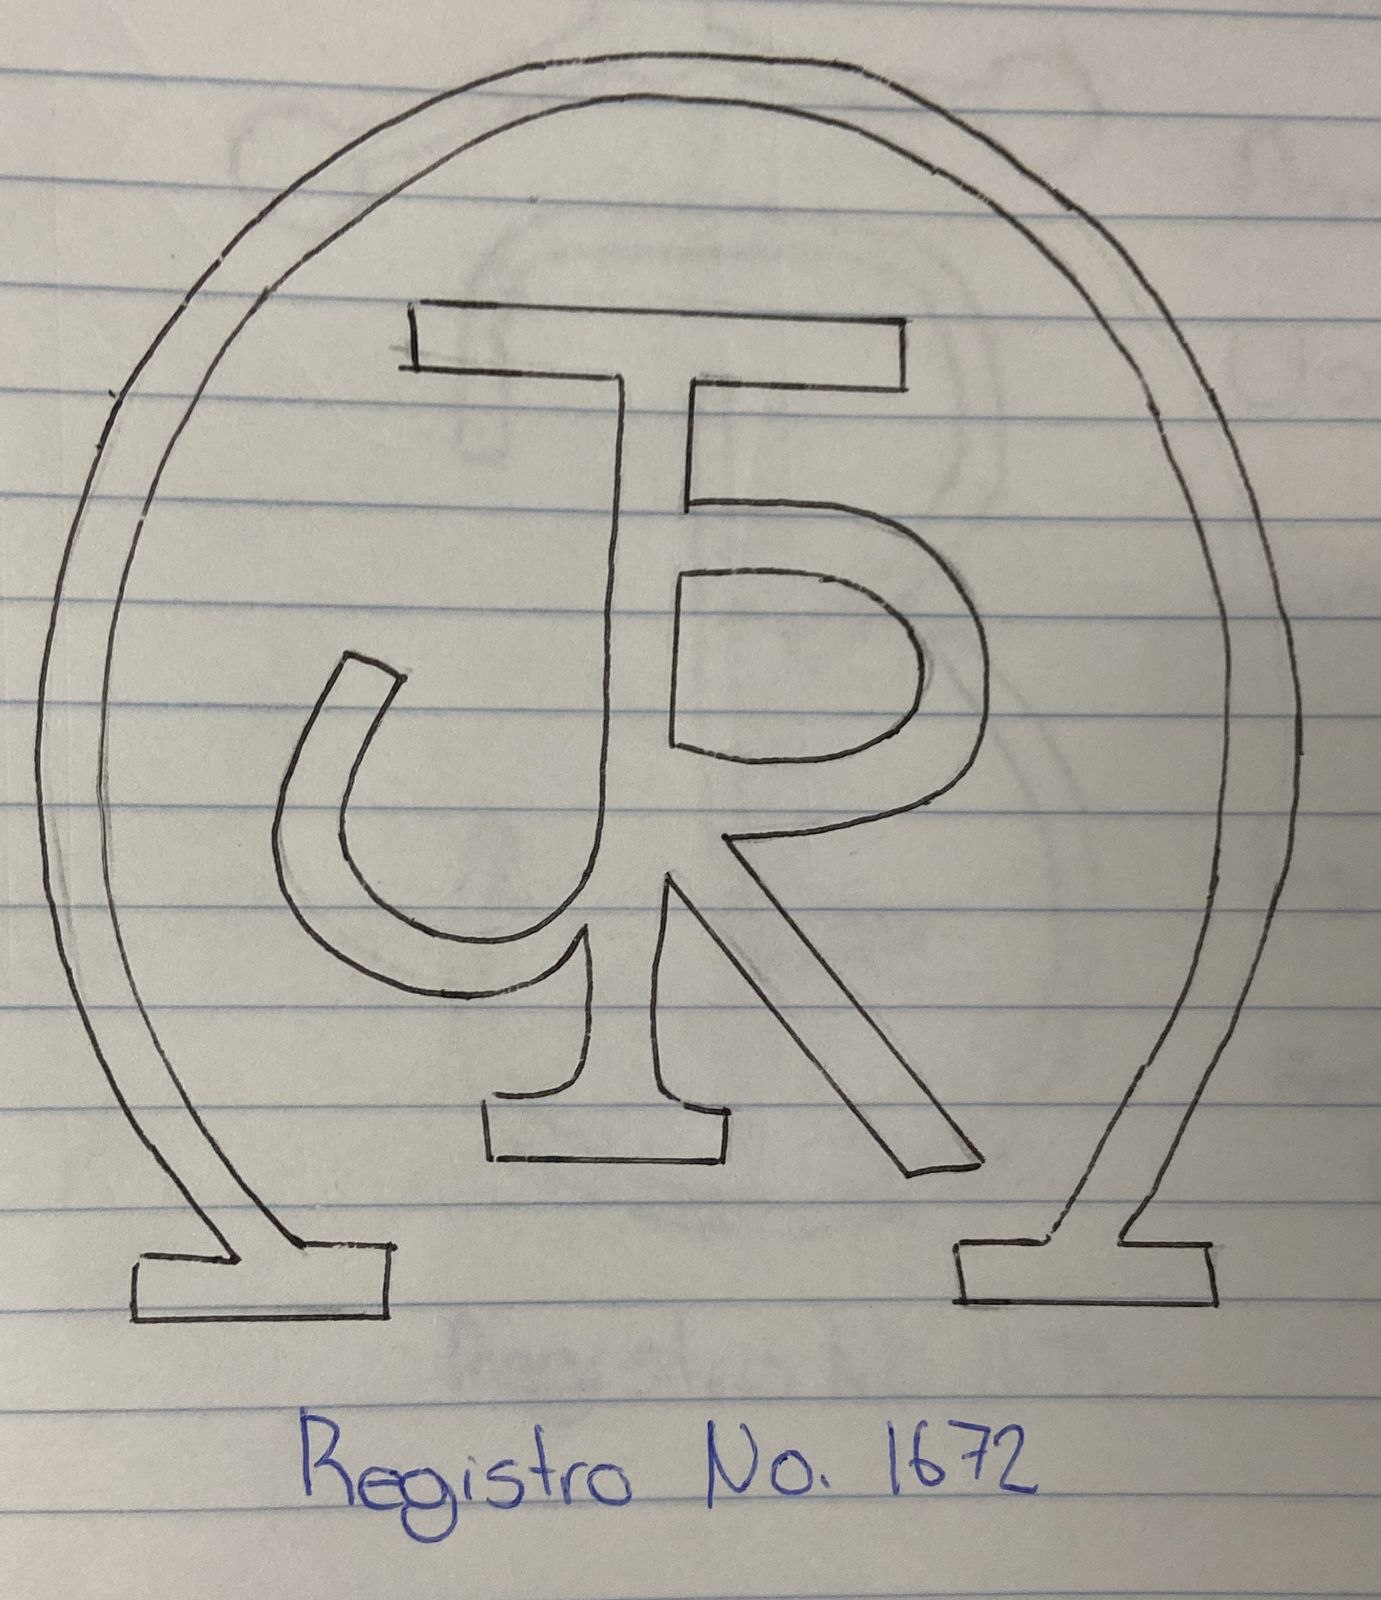 JR
Registro No. 1672